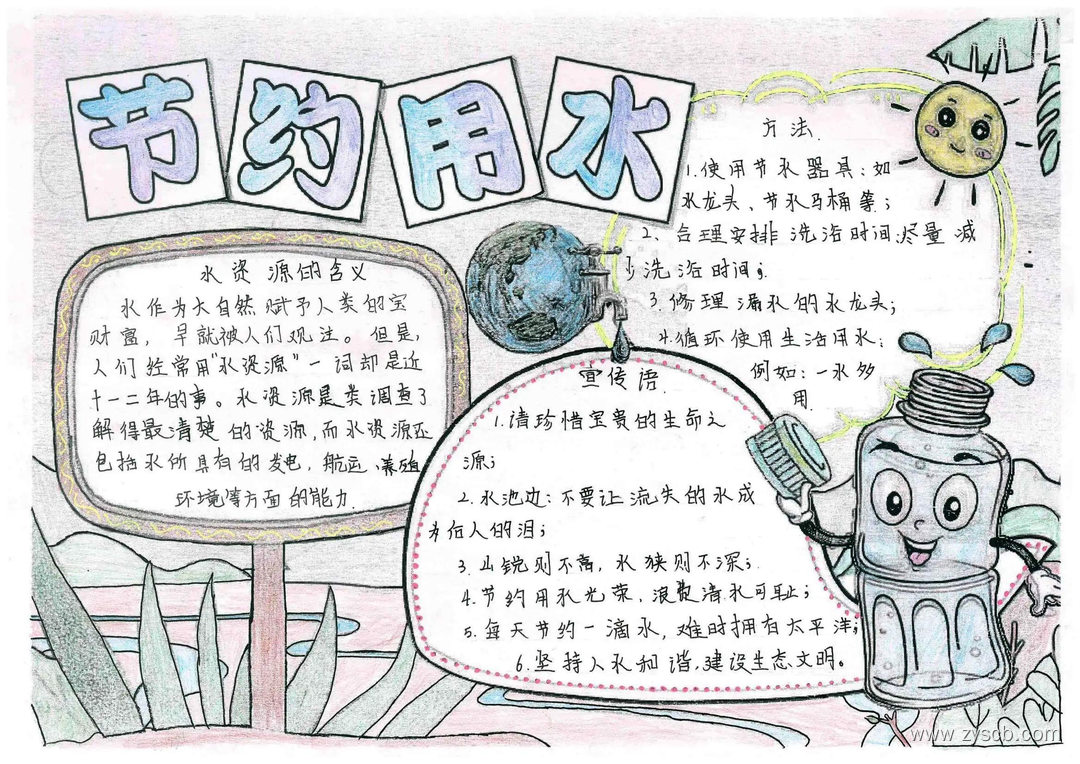 节约用水
水资源的含义
水作为大自然赋予人类的宝
财富，早就被人们观注。但是，
人们经常用"水资源"一词却是近
十一二年的事。水资源是类调查了
解得最清楚的资源，而水资源还
包括水所具有的发电，航运、养殖
环境等方面的能力.
方法.
1.使用节水器具：如
水龙头、节水马桶等；
2、合理安排洗浴时间尽量减
少洗浴时间；
3.修理漏水的水龙头；
4.循环使用生活用水；
例如：一水多
用.
宣传语.
1.请珍惜宝贵的生命之
源；
2.水池边：不要让流失的水成
为后人的泪；
3.山锐则不高，水狭则不深；
4.节约用水光荣、浪费清水可耻；
5.每天节约一滴水，难时拥有太平洋；
6.坚持人水和谐，建设生态文明。
www.zyscb.com